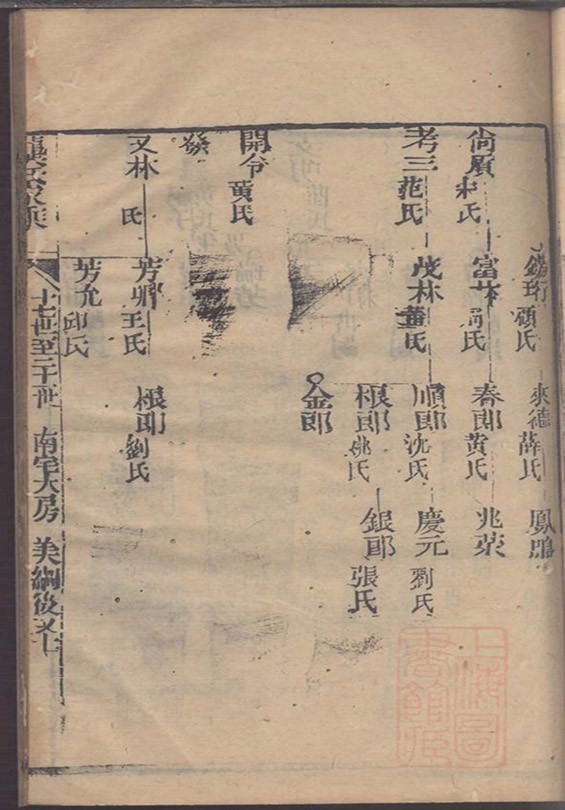 顧氏
爽德
薛氏
鳳
尚
氏
富林
氏
春郎
黄氏
兆荣
考三
范氏
茂林
董氏
順郎
沈氏
慶元
劉氏
根郎
姚氏
銀郎
張氏
金郎
開令
黄氏
發
又林
氏
芳
王氏
根郎
劉氏
芳允
邱氏
十七世至二十世 南宅大房 美綱後又十
上海圖書館藏